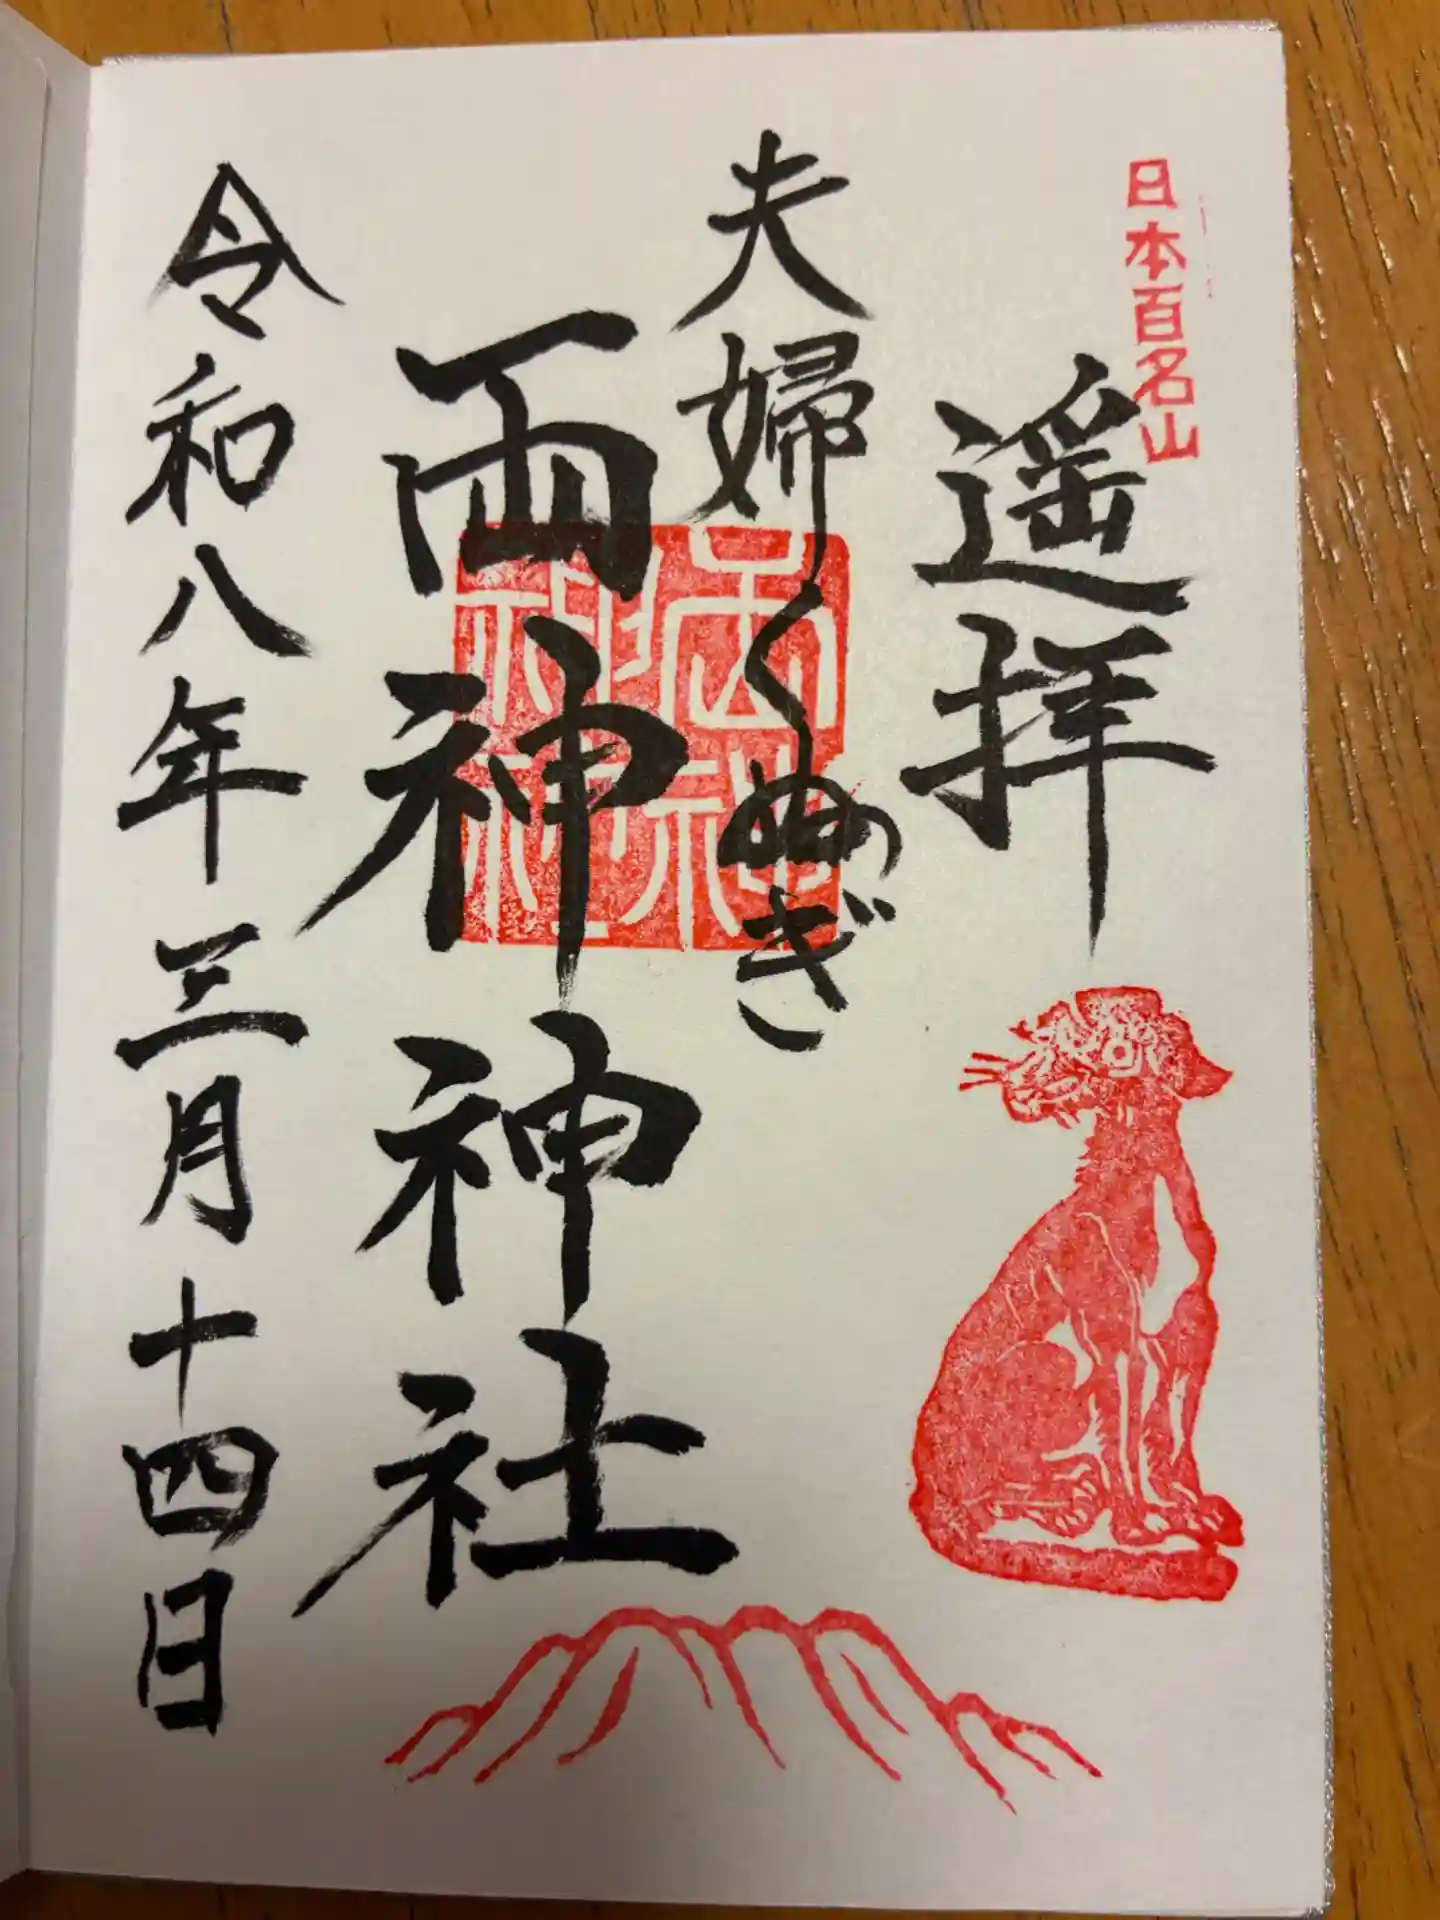 日本百名山
遥拝
夫婦くぬぎ
両神神社
令和八年三月十四日